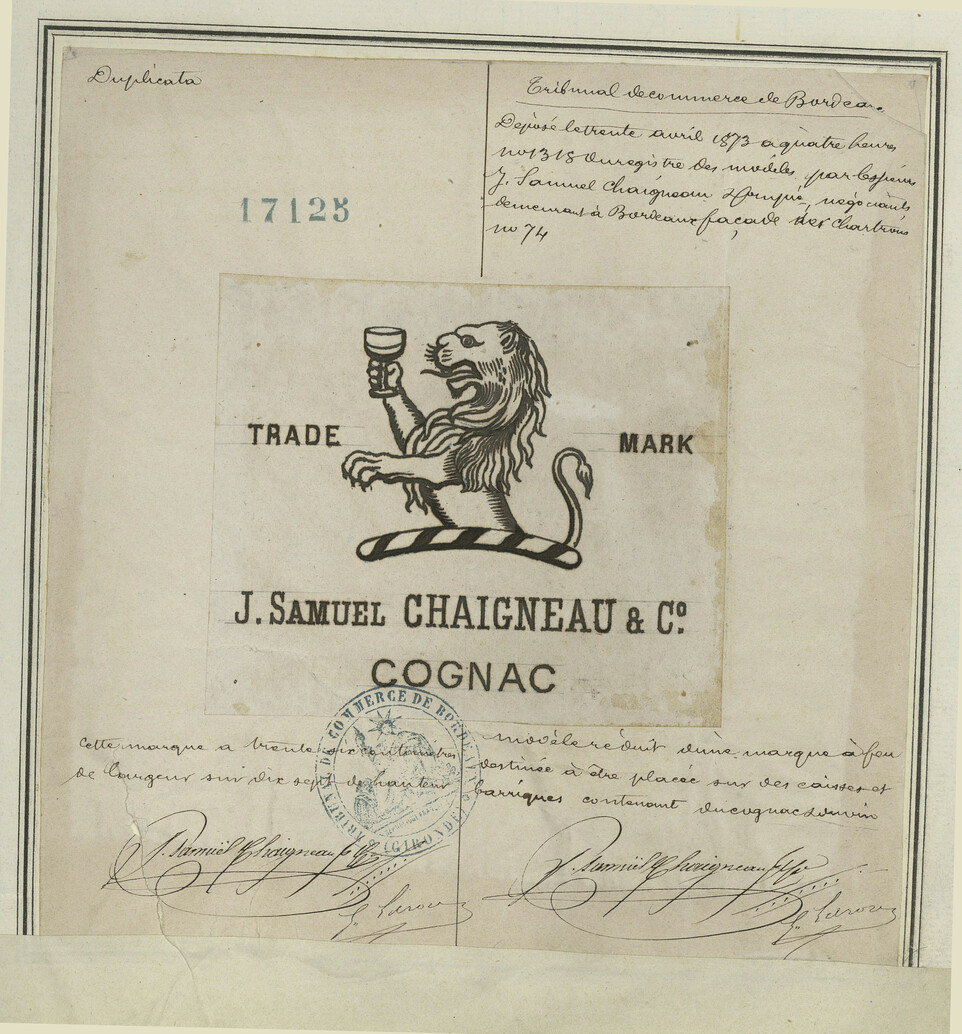 Duplicata
Tribunal de commerce de Bordeaux
Déposé le trente avril 1873 à quatre heures
no 1318 du registre des modèles, par les sieurs
J. Samuel Chaigneau & Compie, négociants
demeurant à Bordeaux façade des Chartrons
no 74
17125
TRADE MARK
J. SAMUEL CHAIGNEAU & Co.
COGNAC
TRIBUNAL DE COMMERCE DE BORDEAUX
(GIRONDE)
Cette marque a trente six centimètres
de largeur sur dix sept de hauteur
modèle réduit d'une marque à feu
destinée à être placée sur des caisses et
barriques contenant du cognac
J. Samuel Chaigneau & Co
J. Samuel Chaigneau & Co